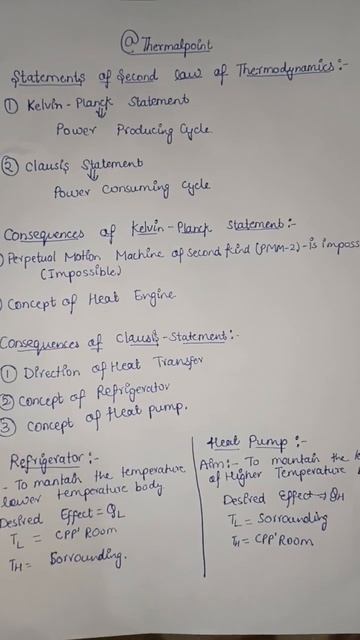 @Thermalpoint
Statements of Second law of Thermodynamics:-
① Kelvin-Planck Statement
Power Producing Cycle
② Clausis Statement
Power Consuming Cycle
Consequences of Kelvin-Planck Statement:-
) Perpetual Motion Machine of second kind (PMM-2)-is imposs
(Impossible)
) Concept of Heat Engine
Consequences of Clausis-Statement:-
① Direction of Heat Transfer
② Concept of Refrigerator
③ Concept of Heat pump.
Refrigerator:-
- To mantain the temperature
lower temperature body.
Desired Effect = QL
TL = CPP' ROOM
TH = Sorrounding.
Heat Pump:-
Aim:- To mantain the
of Higher Temperature
Desired Effect → QH
TL = Sorrounding
TH = CPP' ROOM